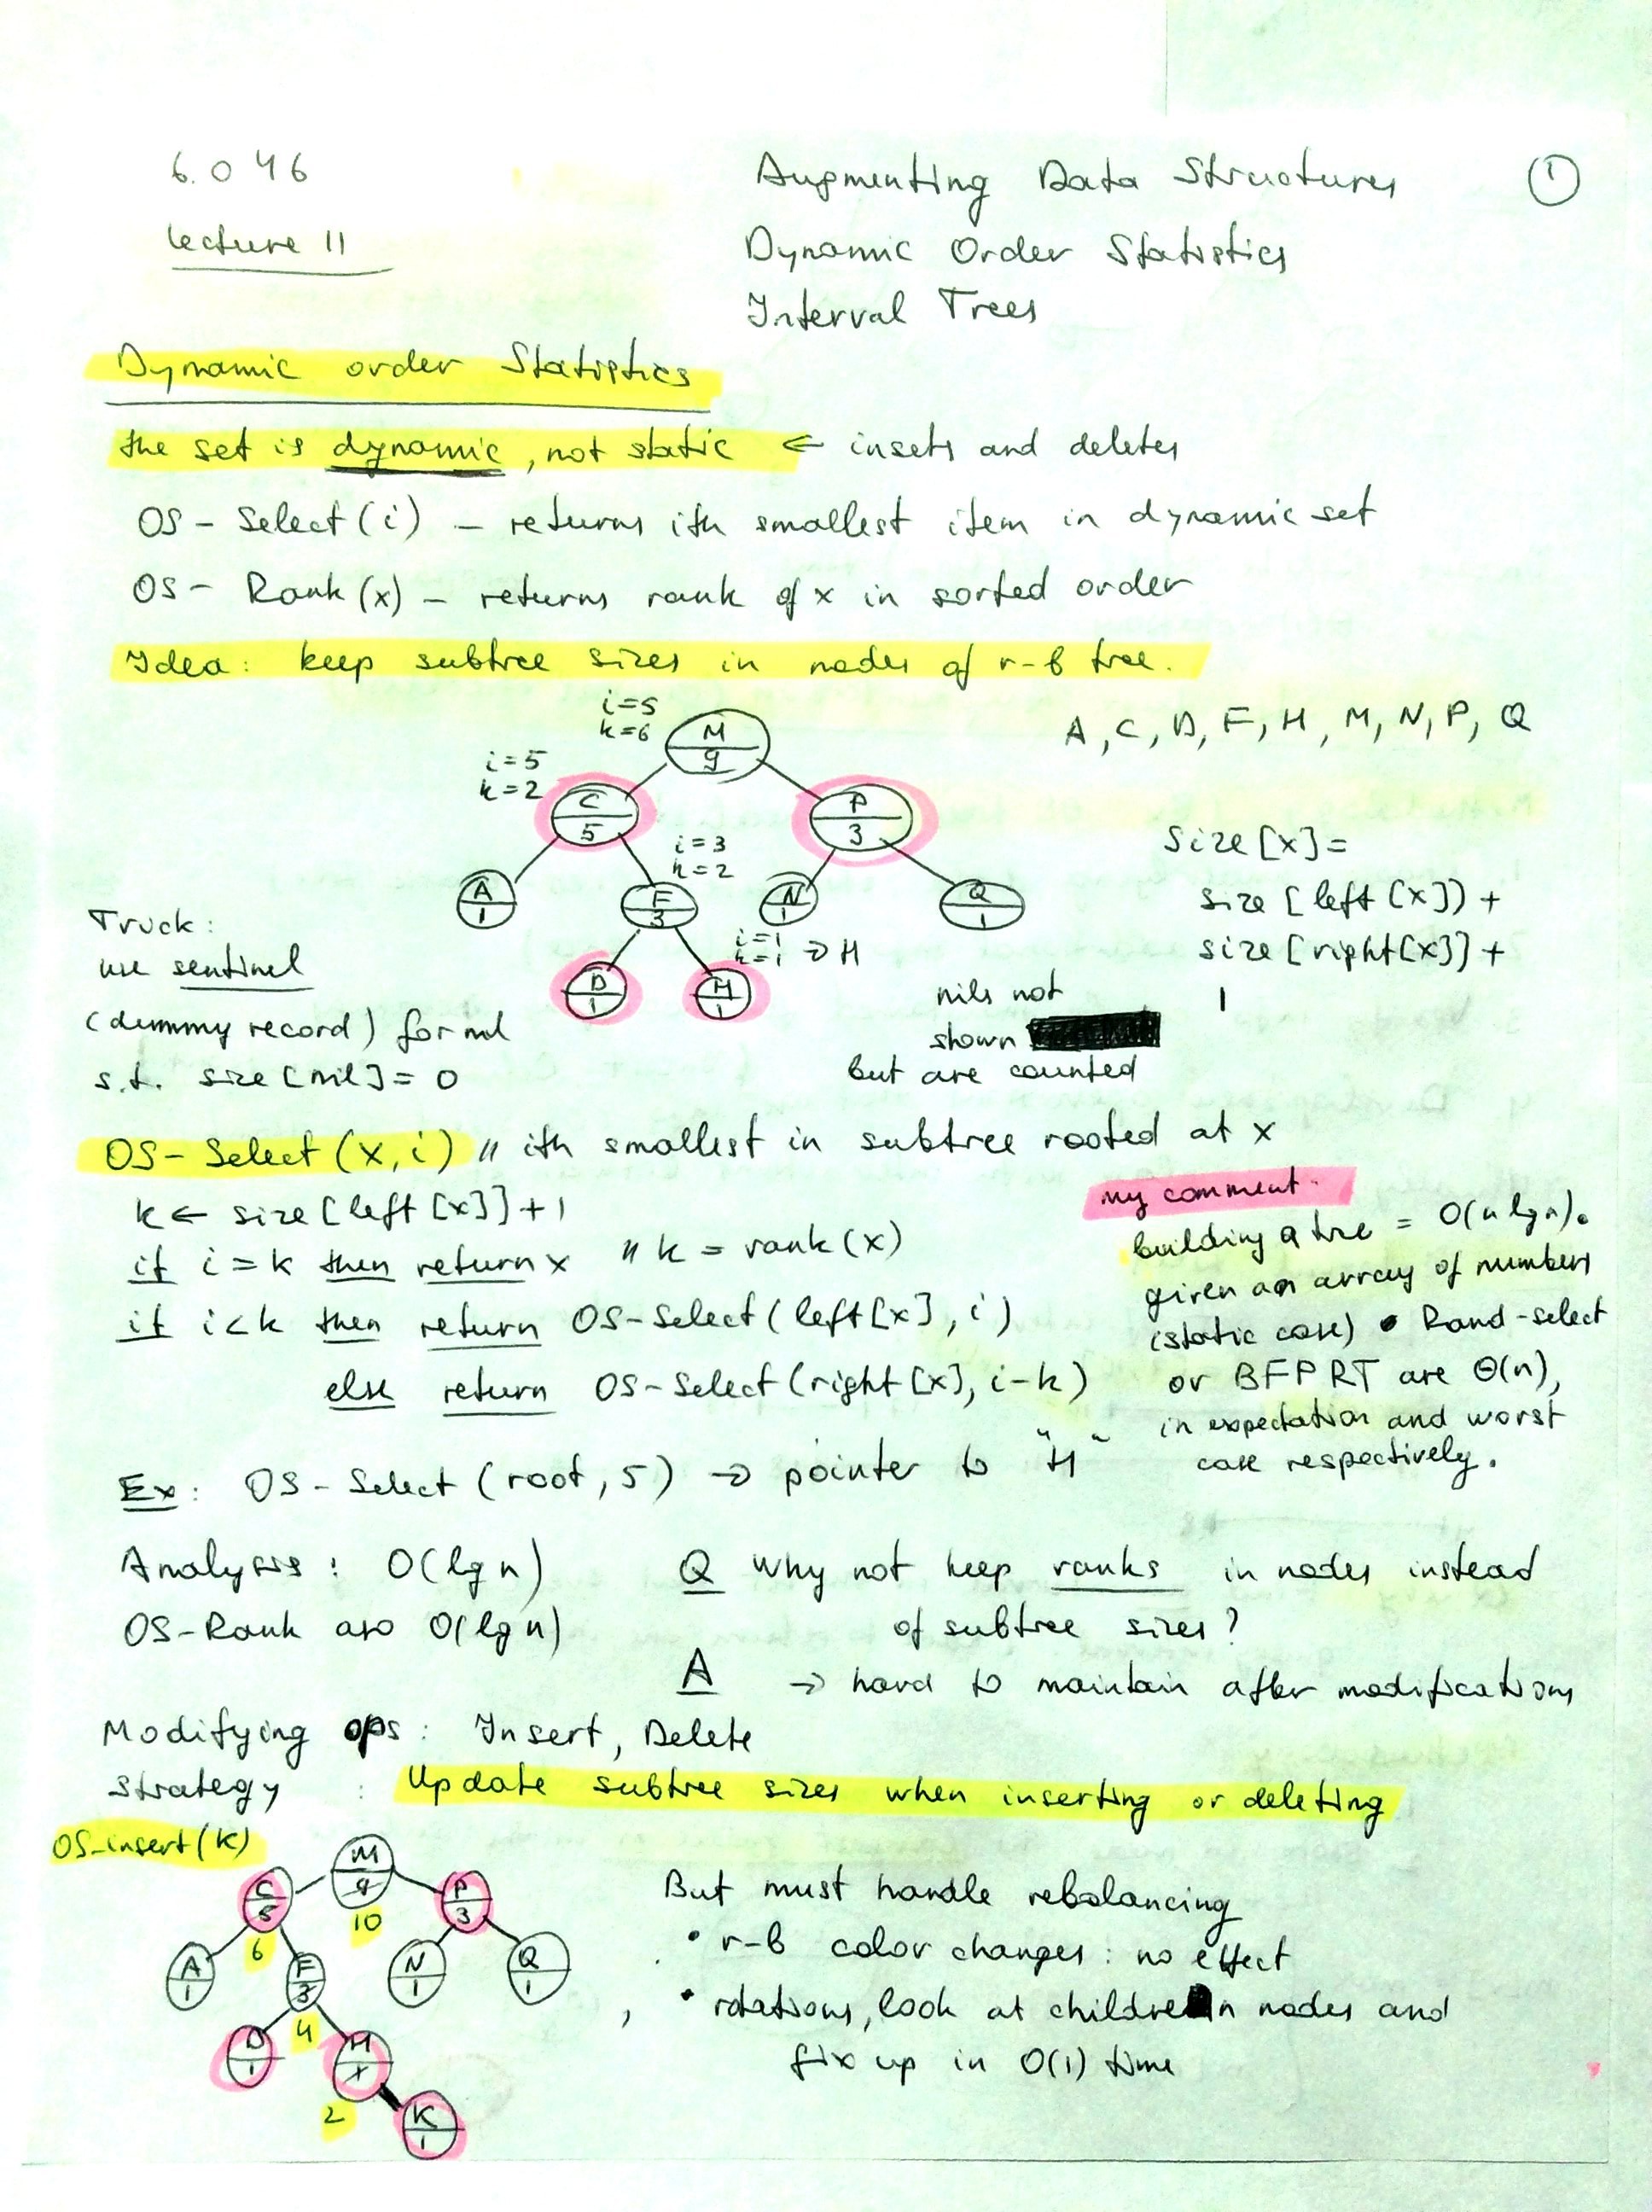 6.046
Augmenting Data Structures
①
Lecture 11
Dynamic Order Statistics
Interval Trees
Dynamic order Statistics
the set is dynamic, not static ⇐ insets and deletes
OS - Select (i) - returns ith smallest item in dynamic set
OS - Rank (x) - returns rank of x in sorted order
Idea: keep subtree sizes in nodes of r-b tree.
i=5
k=6
M
9
A, C, D, F, H, M, N, P, Q
i=5
k=2
C
5
P
3
i=3
k=2
A
1
F
3
N
1
Q
1
Size [x]=
size [left [x]) +
size [right[x]] +
1
i=1
k=1 → H
D
1
H
1
Truck:
use sentinel
(dummy record) for nil
s.t. size [nil] = 0
nils not
shown
but are counted
OS - Select (x, i) // ith smallest in subtree rooted at x
k ← size [left [x]] + 1
if i = k then return x // k = rank (x)
if i < k then return OS-Select (left [x], i)
else return OS-Select (right [x], i-k)
my comment.
building a tree = O(n lg n).
given an array of numbers
(static case) • Rand-select
or BFPRT are Θ(n),
in expectation and worst
case respectively.
Ex: OS - Select (root, 5) → pointer to "H"
Analysis: O(lg n)
OS-Rank aso O(lg n)
Q Why not keep ranks in nodes instead
of subtree sizes?
A → hard to maintain after modifications
Modifying ops: Insert, Delete
Strategy : Update subtree sizes when inserting or deleting
OS-insert (K)
M
9
10
C
5
6
P
3
A
1
F
3
4
N
1
Q
1
D
1
H
1
2
K
1
But must handle rebalancing
• r-b color changes: no effect
• rotations, look at children nodes and
fix up in O(1) time